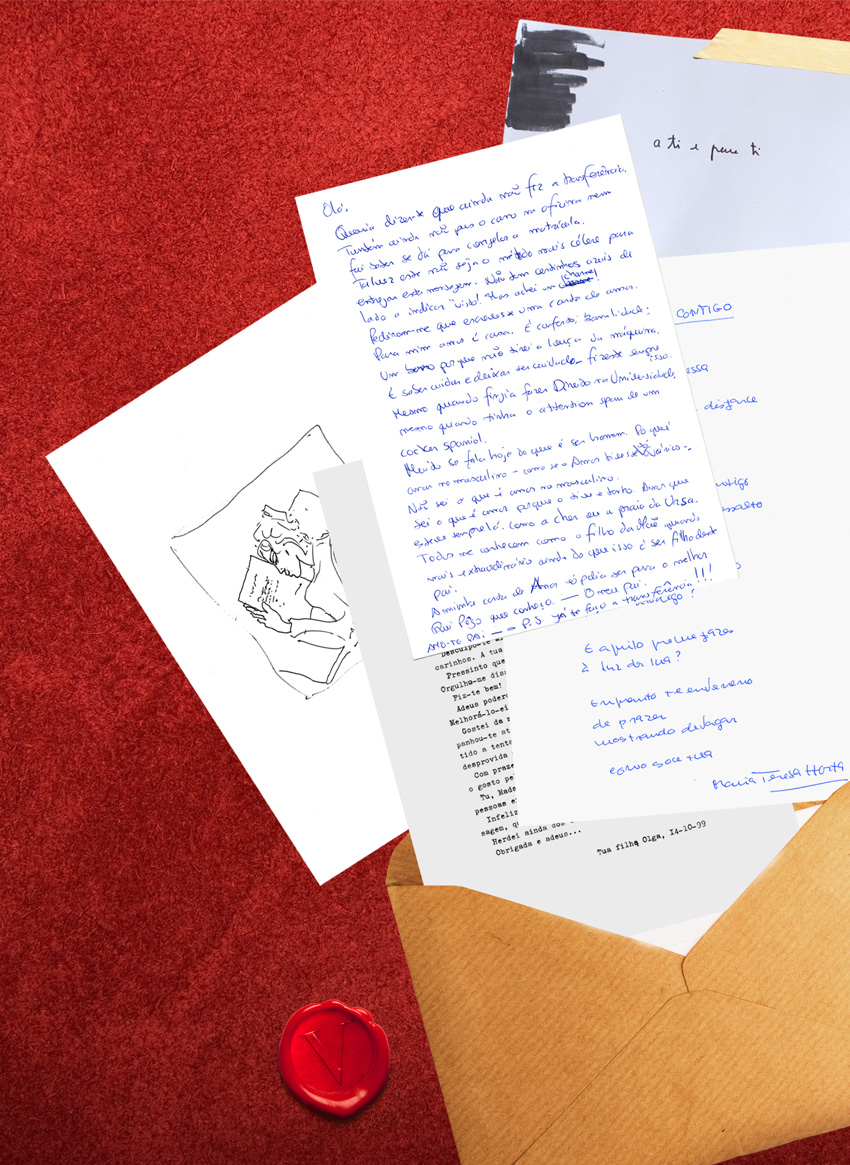 a ti e para ti
Olá,
Queria dizer-te que ainda não fiz a transferência.
Também ainda não pus o carro na oficina nem
fui saber se dá para congelar a matrícula.
Talvez este não seja o método mais célere para
entregar esta mensagem. Não tem certinhos azuis de
lado a indicar "visto". Mas achei um charme!
Pediram-me que escrevesse uma carta de amor.
Para mim amor é casa. É conforto, banalidade:
Um porque não tirei a louça da máquina.
É saber cuidar e deixar ser cuidado – fizeste sempre isso.
Mesmo quando fingia fazer Direito na Universidade,
mesmo quando tinha o attention span de um
cocker spaniel.
Muito se fala hoje do que é ser homem. Do que é
amar no masculino – como se o Amor tivesse
Não sei o que é amar no masculino.
Sei o que é amor porque o tive e tenho. Amor que
esteve sempre lá. Como a cher ou a praia da Ursa.
Todos me conhecem como o filho da Mãe quando
mais extraordinário ainda do que isso é ser filho deste
pai.
A minha carta de Amor só podia ser para o melhor
Rui Pêgo que conheço. — O meu pai.
AMO-TE PAI — P.S. já te faço a transferência!!!
CONTIGO
essa
distância
ntigo
ssalto
comigo?
E aquilo que me fazes
à luz da lua?
Enquanto me enveneno
de prazer
mostrando devagar
como sou tua
Maria Teresa Horta
Desculpo-te a
carinhos. A tua
Pressinto que
Orgulho-me diss
Fiz-te bem!
Adeus podero
Melhorá-lo-ei
Gostei da s
panhou-te at
tido a tente
desprovida
Com praze
o gosto pe
Tu, Mada
pessoas e
Infeliz
sagem, qu
Herdei ainda dos
Obrigada e adeus...
Tua filha Olga, 14-10-99
V